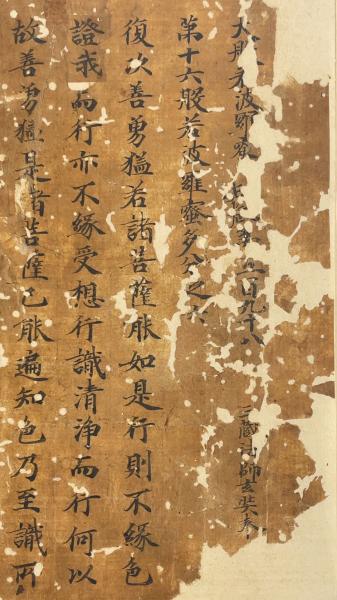 大般若波羅蜜多經卷第五百九十八
三藏法師玄奘奉
第十六般若波羅蜜多分之六
復次善勇猛若諸菩薩能如是行則不緣色
證我而行亦不緣受想行識清淨而行何以
故善勇猛是諸菩薩已能遍知色乃至識所